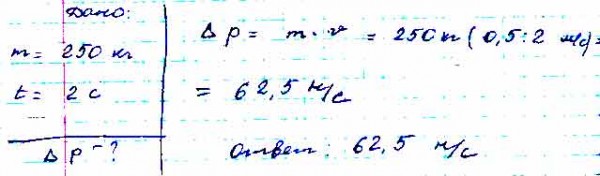 Дано:
m = 250 кг
t = 2 с
Δ p - ?
Δ p = m · v = 250 кг ( 0,5 : 2 м/с) =
= 62,5 н/с
ответ: 62,5 н/с